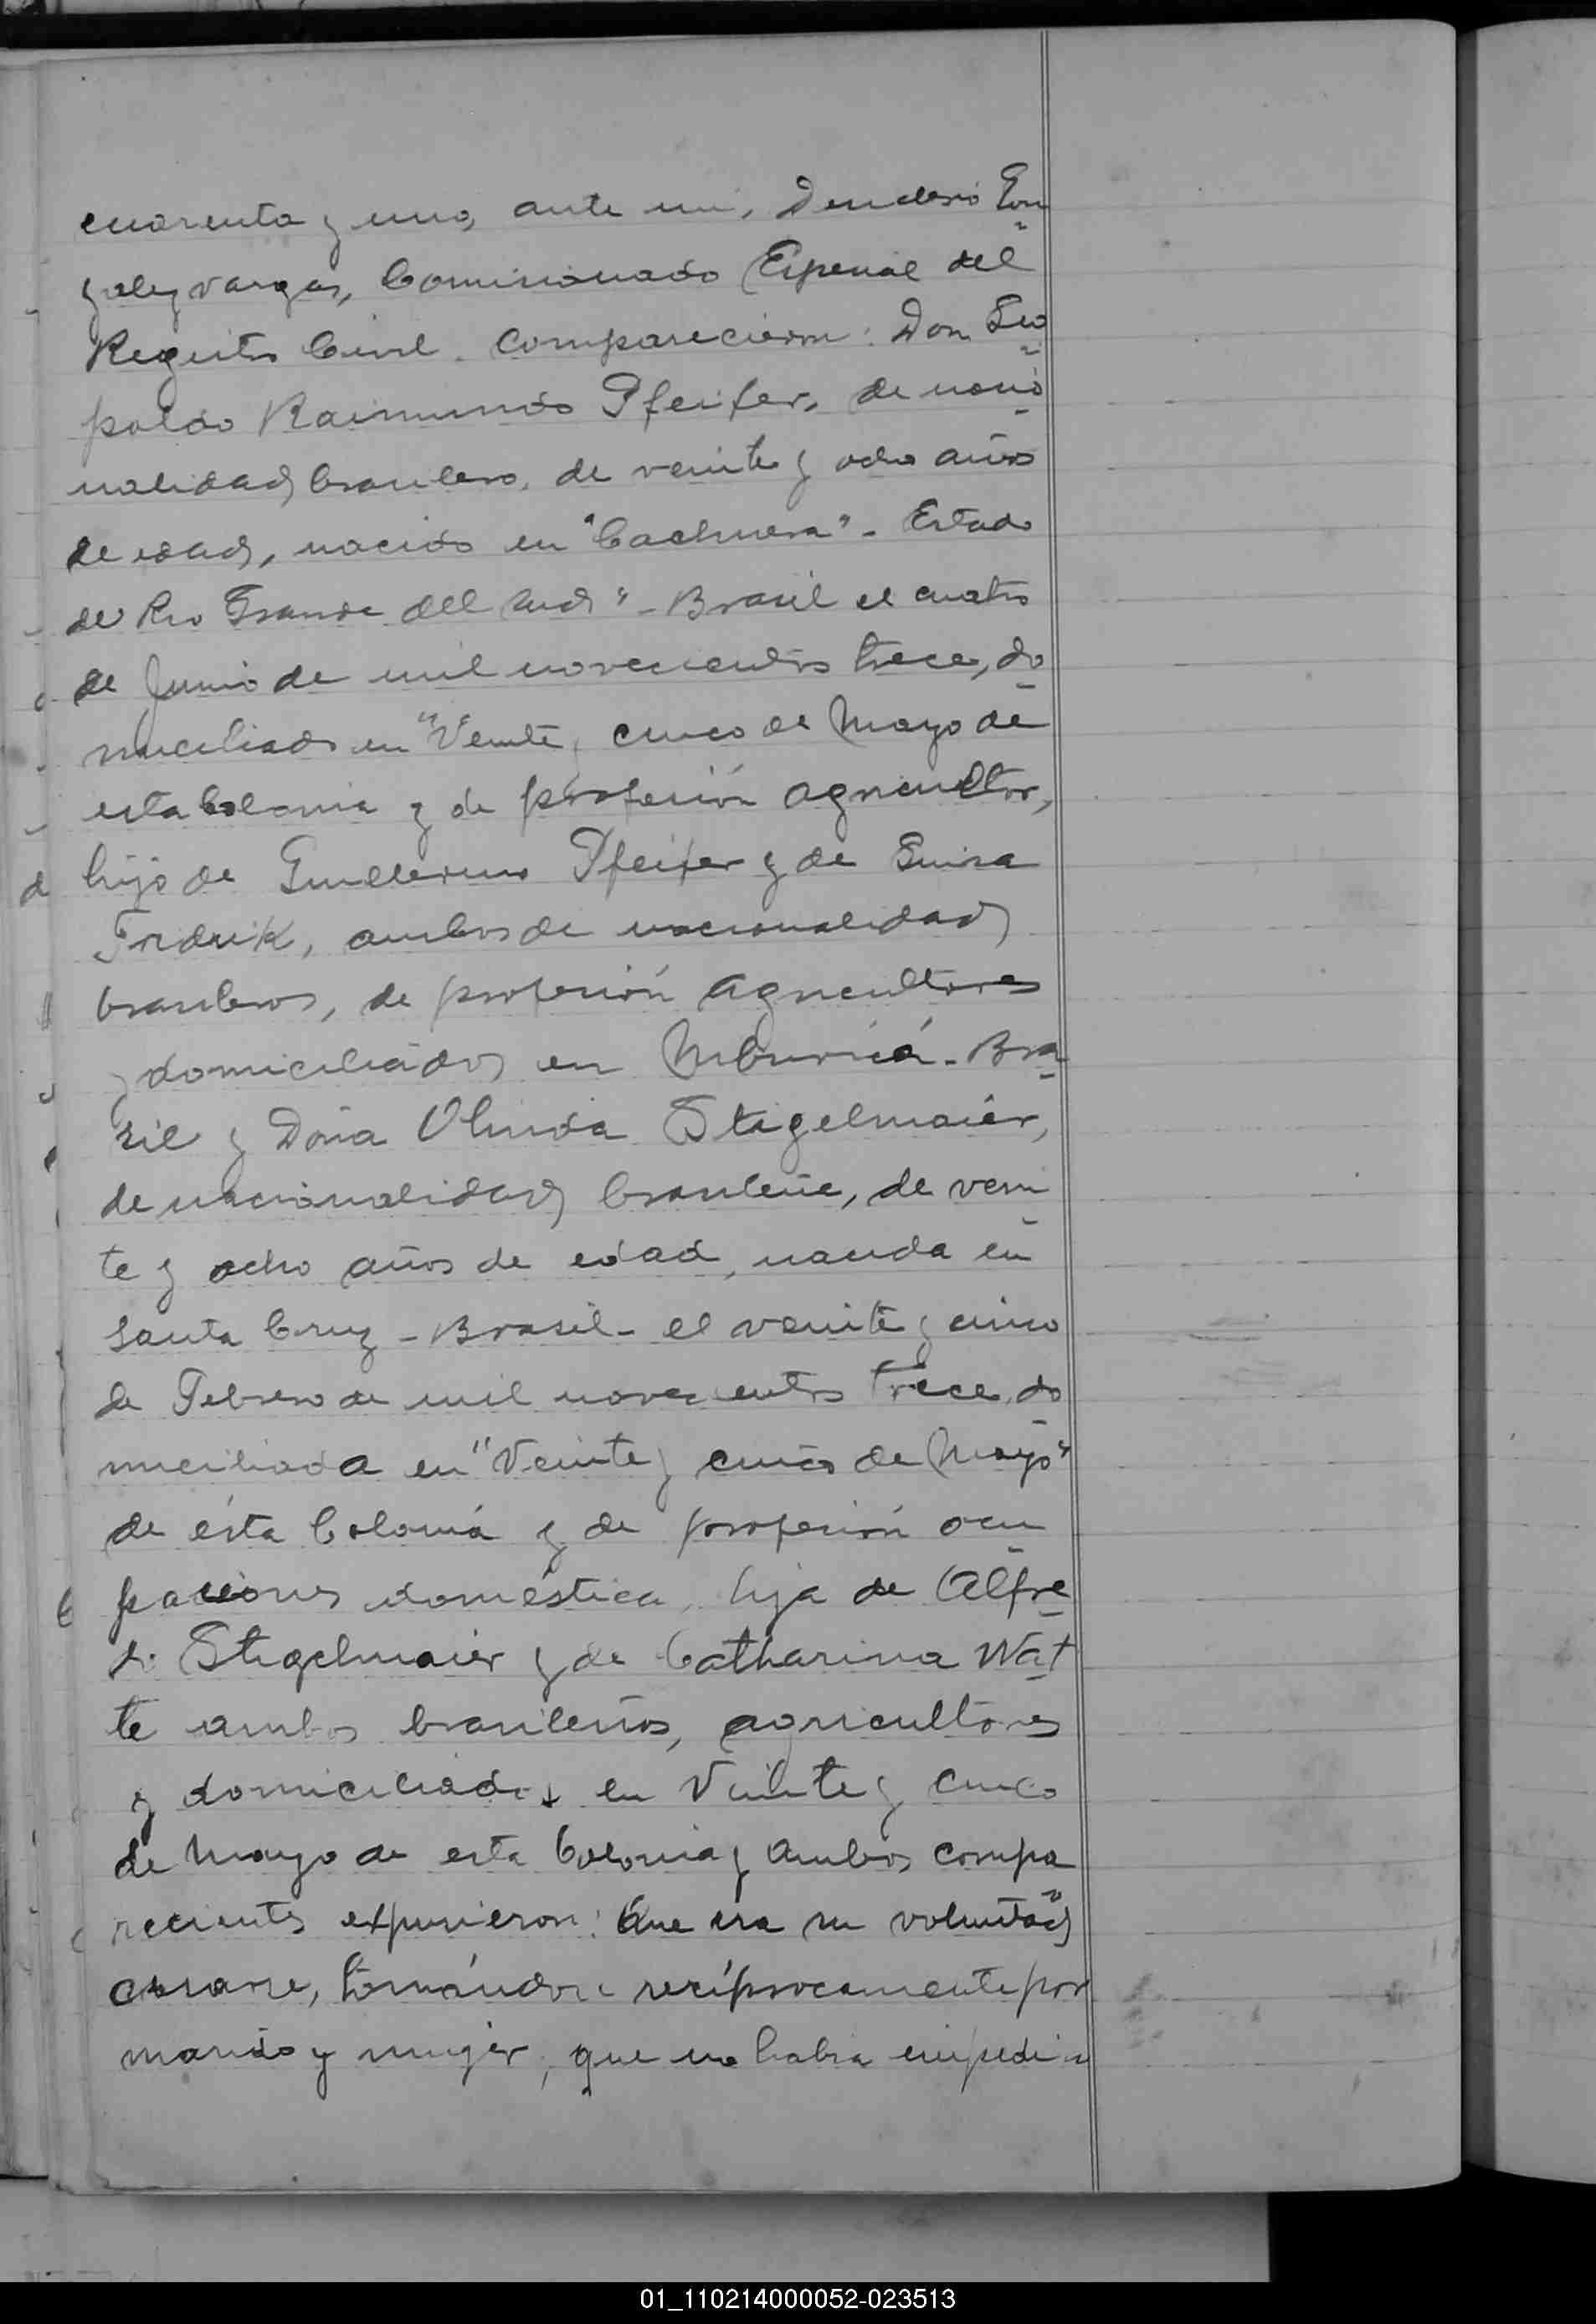 cuarenta y uno, ante mi, Desiderio Gon
zalez Vargas, Comisionado Especial del
Registro Civil. Comparecieron: Don Leo
poldo Raimundo Pfeifer, de nacio
nalidad brasilero, de veinte y ocho años
de edad, nacido en "Cachuera" - Estado
de Rio Grande del Sud" - Brasil el cuatro
de Junio de mil novecientos trece, do
miciliado en "Veinte y cinco de Mayo de
esta Colonia y de profesión agricultor,
hijo de Guillermo Pfeifer y de Luisa
Fredrik, ambos de nacionalidad
brasileros, de profesión agricultores
y domiciliados en - Bra
sil y Doña Olinda Stigelmaier,
de nacionalidad brasileña, de vein
te y ocho años de edad, nacida en
Santa Cruz - Brasil - el veinte y cinco
de Febrero de mil novecientos trece, do
miciliada en "Veinte y cinco de Mayo"
de ésta Colonia y de profesión ocu
paciones doméstica, hija de Alfre
do Stigelmaier y de Catharina Wat
te ambos brasileños, agricultores
y domiciliados en Veinte y cinco
de Mayo de esta Colonia y ambos compa
recientes expusieron: Que era su voluntad
casarse, tomándose recíprocamente por
marido y mujer, que no habia impedi
01_110214000052-023513